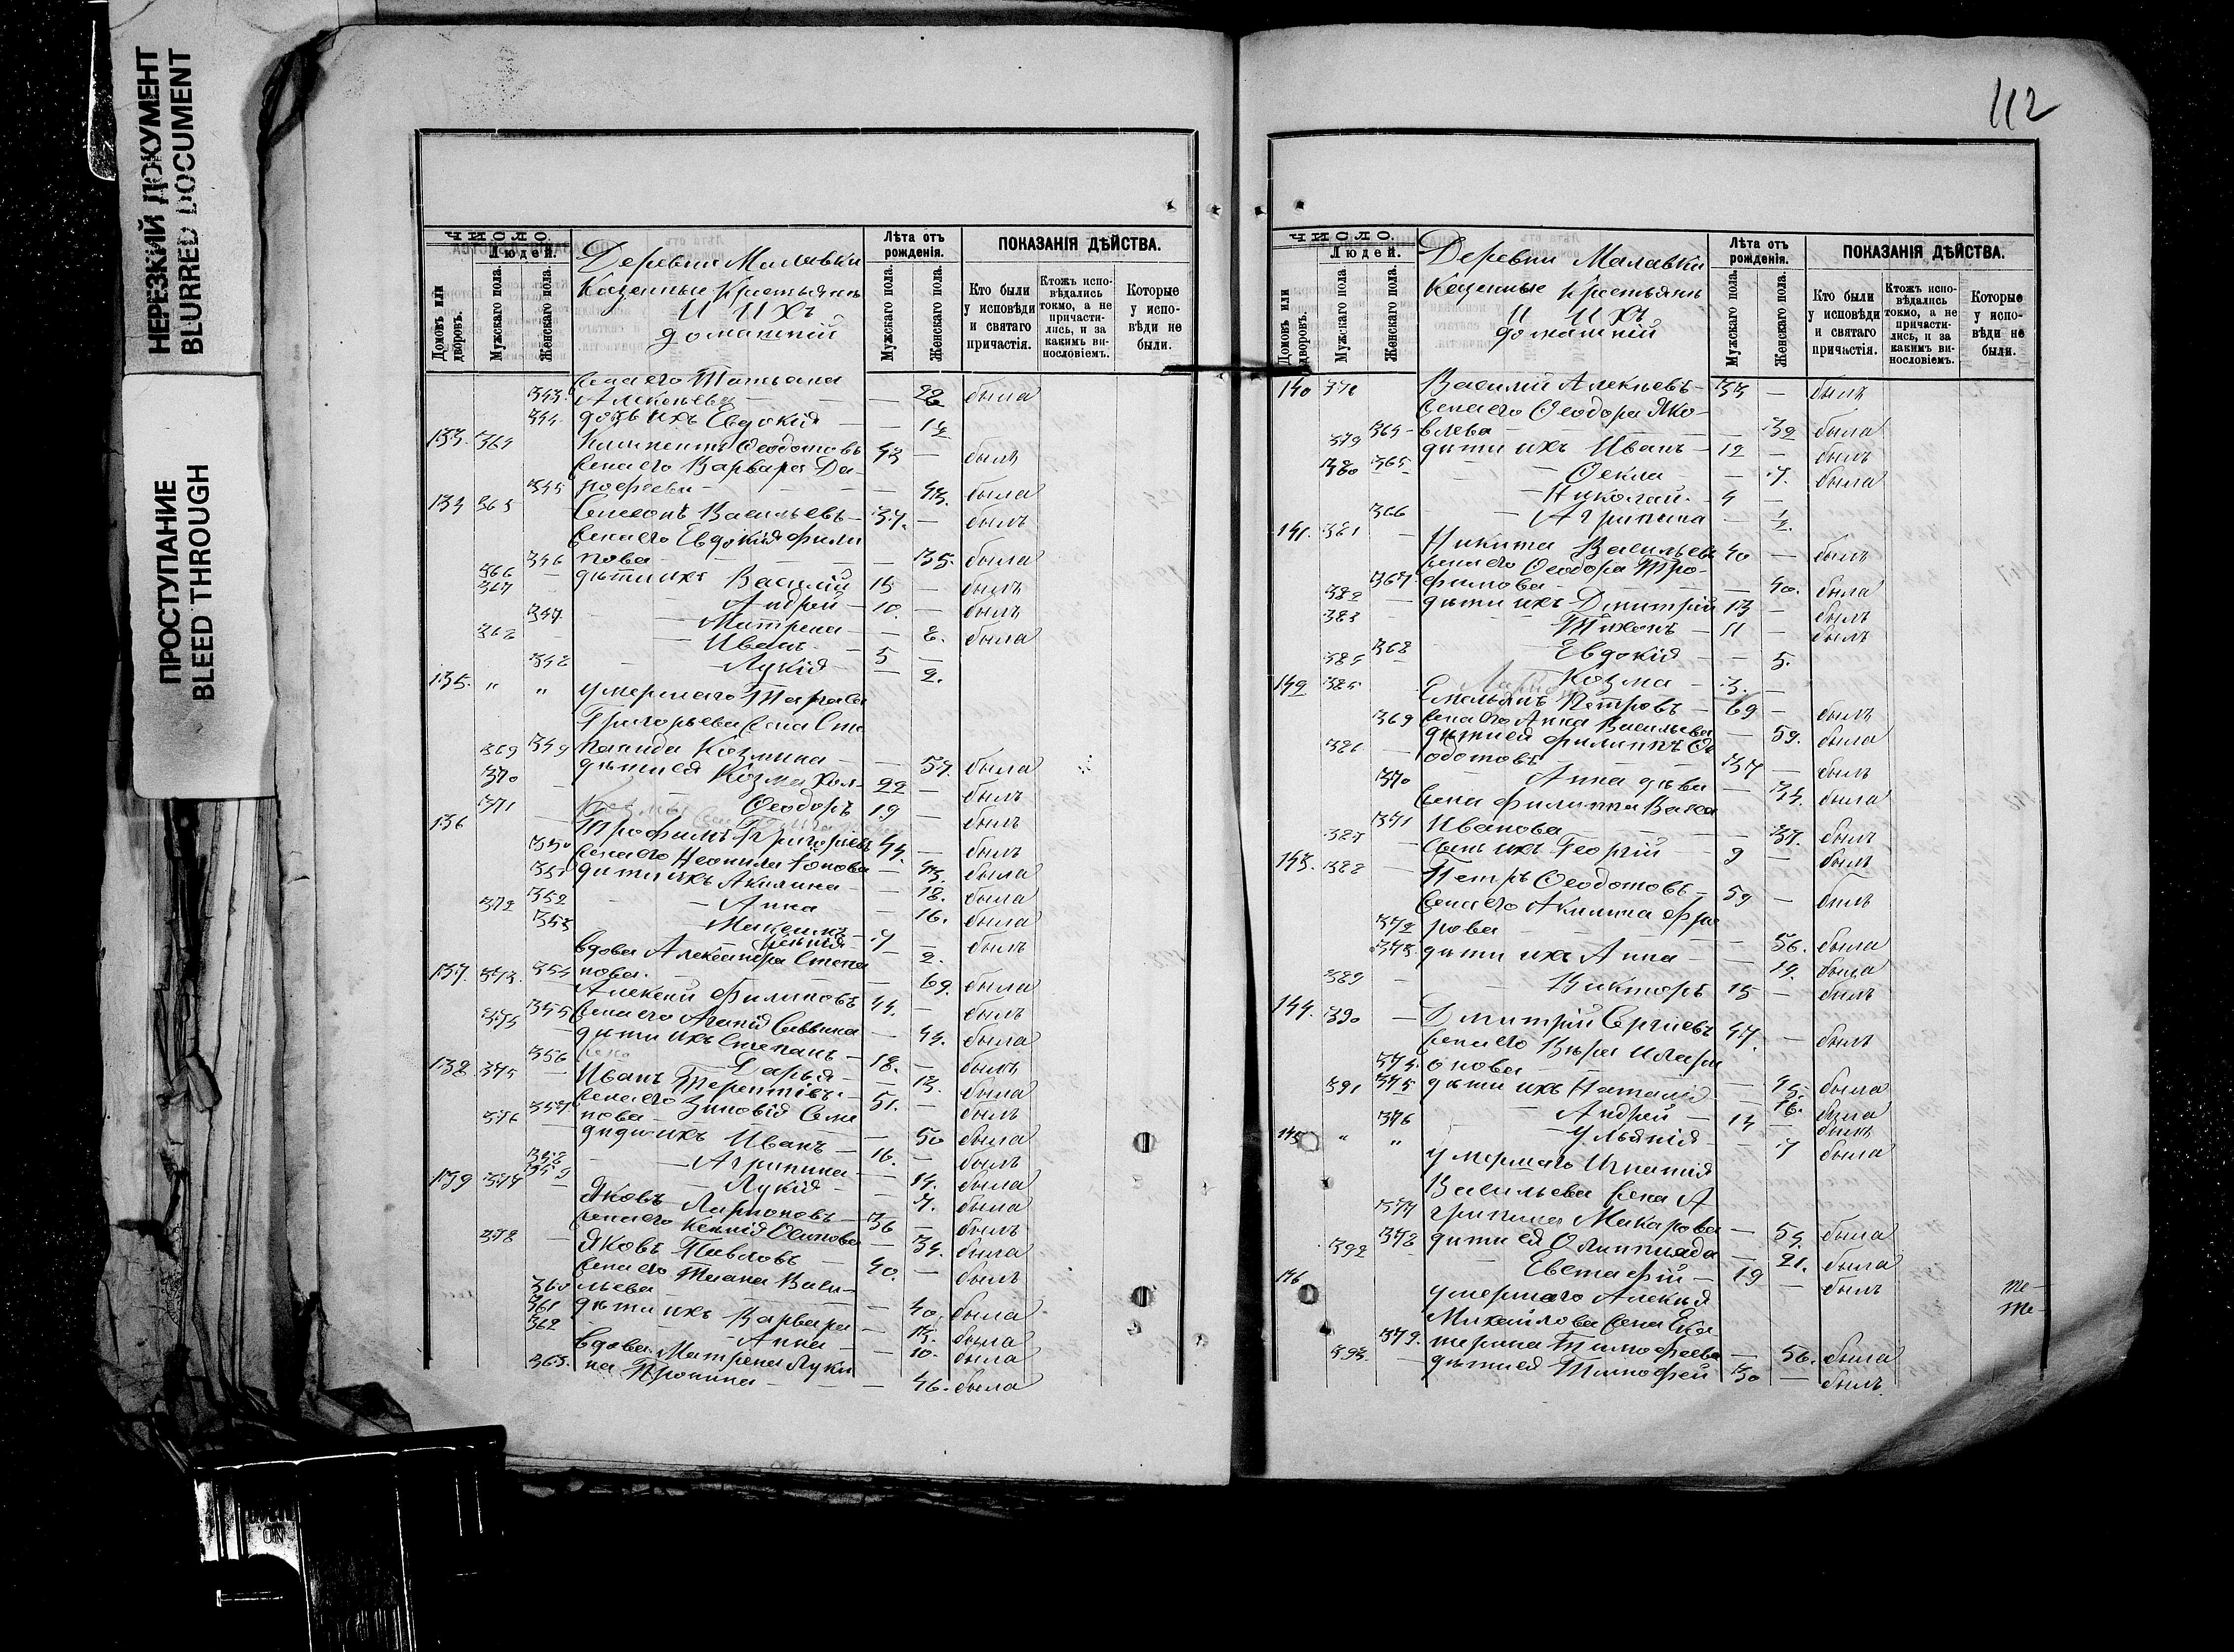 НЕРЕЗКИЙ ДОКУМЕНТ
BLURRED DOCUMENT
ПРОСТУПАНИЕ
BLEED THROUGH
ЧИСЛО.
Людей.
Домовъ или дворовъ.
Мужскаго пола.
Женскаго пола.
Деревни
Казенные Крестьяне
И ИХЪ
домашній
Лѣта отъ рожденія.
Мужскаго пола.
Женскаго пола.
ПОКАЗАНІЯ ДѢЙСТВА.
Кто были у исповѣди и святаго причастія.
Ктожъ исповѣдались токмо, а не причастились, и за какимъ винословіемъ.
Которые у исповѣди не были.
жена его Татьяна
343. Алексѣева — была
344. дочь ихъ Евдокія —
133. 364 Климентъ Ѳеодотовъ 43 — былъ
жена его Варвара До-
345 рофеева — 43. была
134 365 Симеонъ Васильевъ 37. — былъ
жена его Евдокія Фили
346 пова — 35. была
366 дѣти ихъ Василій 15 — былъ
367 Андрей 10. — былъ
347. Матрена — 8. была
368 Иванъ 5 —
348 Лукія — 2.
135. " " умершаго
Григорьева жена Сте
349 панида Козмина — 57. была
369 дѣти ея Козма 22 — былъ
370 Ѳеодоръ 19 — былъ
136 371 Трофимъ Григорьевъ 44. — былъ
350 жена его Неонила — 43. была
351 дѣти ихъ Акилина — 18. была
352 Анна — 16. была
372 Максимъ 7 — былъ
353 Ксенія — 2.
вдова Александра Степа
354 нова. — 69. была
137. 373. Алексей Филиповъ 44. — былъ
355 жена его Агапія Саввина — 44. была
374 дѣти ихъ Степанъ 18. — былъ
356 Дарья — 13. была
138. 375 Иванъ Терентіевъ 51. — былъ
жена его Зиновія Семе
357 нова — 50 была
376 дѣти ихъ Иванъ 16. — былъ
358 Агрипина — 14. была
359 Лукія — 7. была
139 377 Яковъ Ларіоновъ 36 — былъ
жена его Ксенія Осипова — 34. была
378 Яковъ Павловъ 40. — былъ
жена его Васи-
360 льева — 40. была
361 дѣти ихъ Варвара — 13. была
362 Анна — 10. была
вдова Матрена Луки
363. на Пронина — 46. была
112
ЧИСЛО.
Людей.
Домовъ или дворовъ.
Мужскаго пола.
Женскаго пола.
Деревни Малавки
Казенные Крестьяне
И ИХЪ
домашній
Лѣта отъ рожденія.
Мужскаго пола.
Женскаго пола.
ПОКАЗАНІЯ ДѢЙСТВА.
Кто были у исповѣди и святаго причастія.
Ктожъ исповѣдались токмо, а не причастились, и за какимъ винословіемъ.
Которые у исповѣди не были.
140 378 Василій Алексѣевъ 33 — былъ
жена его Ѳеодора Яко-
364 влева — 32 была
379 дѣти ихъ Иванъ 12 — былъ
365 Ѳекла — 7. была
380 Николай 4 —
366 Агрипина — ½.
141. 381 Никита Васильевъ 40 — былъ
жена его Ѳеодора Тро-
367 фимова — 40. была
382 дѣти ихъ Дмитрій 13 — былъ
383 Тихонъ 11 — былъ
368 Евдокія — 5.
384 Козма 3. —
142 385 Емельянъ Петровъ 69 — былъ
369 жена его Анна Васильева — 59. была
дѣти ея Филиппъ Ѳе
386 одотовъ 37 — былъ
370 Анна дѣва — 34. была
жена Филиппа Васса
371 Иванова — 37. былъ
387 сынъ ихъ Георгій 9 — былъ
143. 388 Петръ Ѳеодотовъ 59 — былъ
жена его Акилина
372 рова — 56. была
373. дѣти ихъ Анна — 19. была
389 Викторъ 15 — былъ
144. 390 Дмитрій Сергіевъ 47. — былъ
жена его Вѣра Илари
374. онова — 45. была
375 дѣти ихъ Наталія — 16. была
391 Андрей 14 — былъ
376 Ульянія — 7 была
145 " " умершаго Игнатія
Васильева жена А
377 грипина Макарова — 54. была
378 дѣти ея Олимпіада — 21. была
392 Евстафій 19 — былъ
146 умершаго Алексѣя
Михайлова жена Ека
379. терина Тимофеева — 56. была
393. дѣти ея Тимофей 30 — былъ